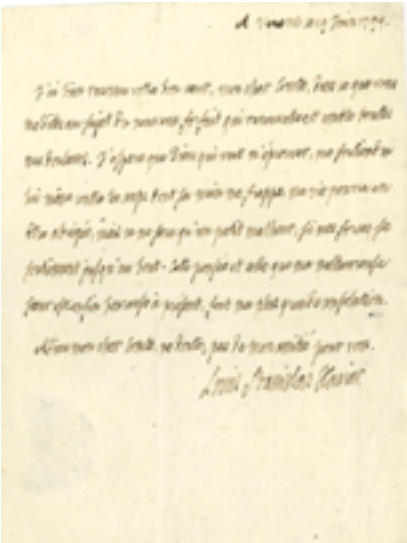 A Vérone ce 19 Juin 1795.
J'ai bien reconnu votre bon cœur, mon cher Comte, dans ce que vous
me dites au sujet du nouveau forfait qui renouvelle et comble toutes
nos douleurs. J'espère que Dieu qui veut m'éprouver, me soutiendra
lui même contre les coups dont sa main me frappe, ma vie pourra en
être abrégée, mais ce ne sera qu'un petit malheur, si mes forces se
soutiennent jusqu'au bout. Cette pensée et celle que ma malheureuse
sœur est enfin heureuse à présent, font ma plus grande consolation.
Adieu mon cher Comte, ne doutez pas de mon amitié pour vous.
Louis Stanislas Xavier